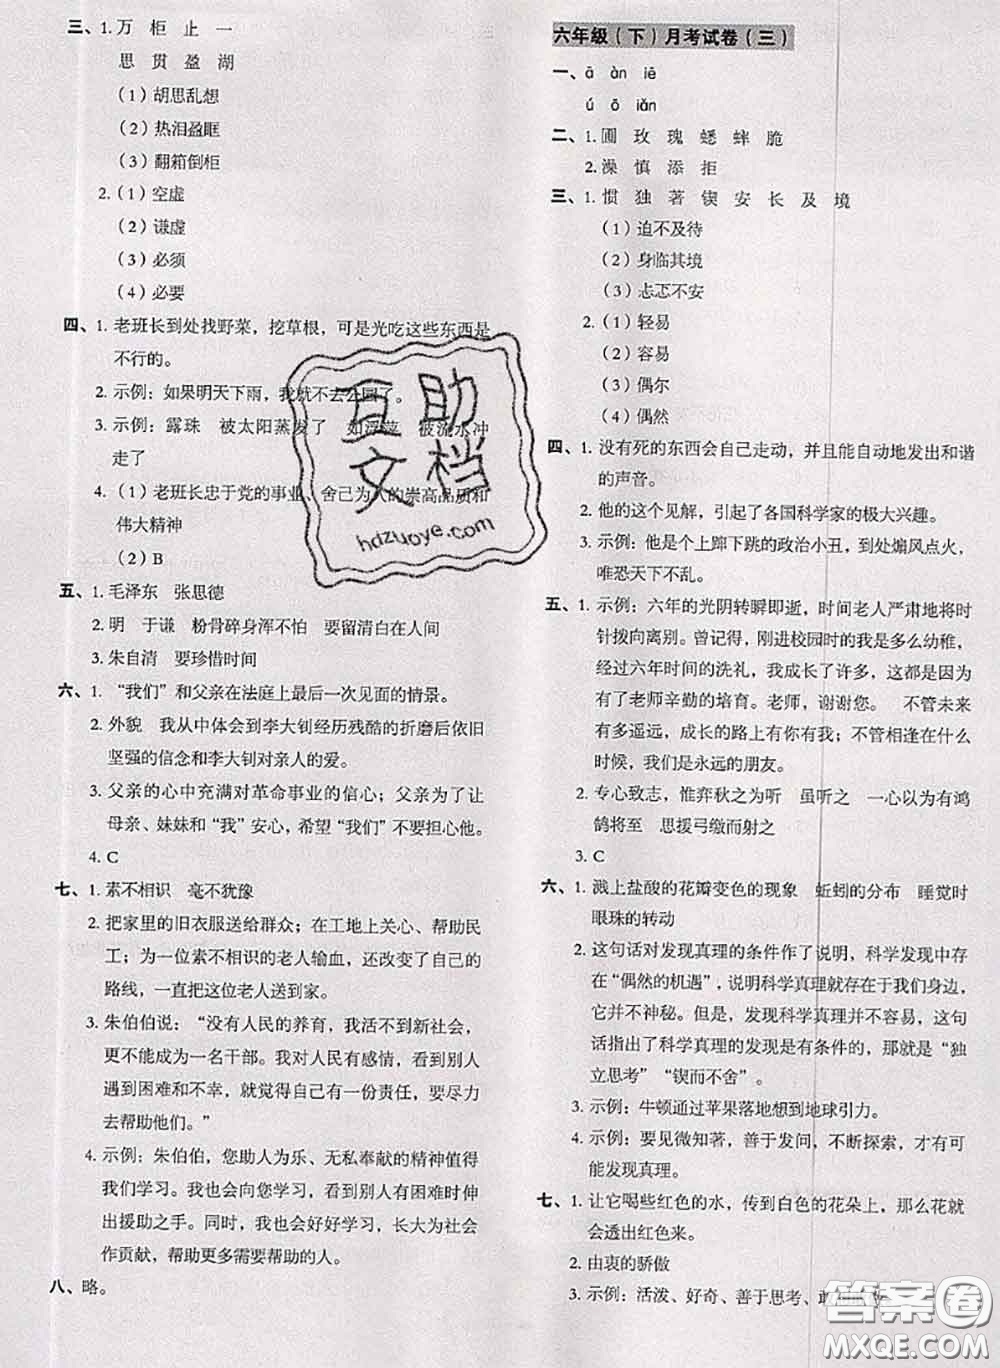 三、1. 万 柜 止 一
思 贯 盈 湖
（1）胡思乱想
（2）热泪盈眶
（3）翻箱倒柜
2.（1）空虚
（2）谦虚
（3）必须
（4）必要
四、1. 老班长到处找野菜，挖草根，可是光吃这些东西是
不行的。
2. 示例：如果明天下雨，我就不去公园了。
3. 示例：露珠 被太阳蒸发了 如浮萍 被流水冲
走了
4.（1）老班长忠于党的事业、舍己为人的崇高品质和
伟大精神
（2）B
五、1. 毛泽东 张思德
2. 明 于谦 粉骨碎身浑不怕 要留清白在人间
3. 朱自清 要珍惜时间
六、1. “我们”和父亲在法庭上最后一次见面的情景。
2. 外貌 我从中体会到李大钊经历残酷的折磨后依旧
坚强的信念和李大钊对亲人的爱。
3. 父亲的心中充满对革命事业的信心；父亲为了让
母亲、妹妹和“我”安心，希望“我们”不要担心他。
4. C
七、1. 素不相识 毫不犹豫
2. 把家里的旧衣服送给群众；在工地上关心、帮助民
工；为一位素不相识的老人输血，还改变了自己的
路线，一直把这位老人送到家。
3. 朱伯伯说：“没有人民的养育，我活不到新社会，
更不能成为一名干部。我对人民有感情，看到别人
遇到困难和不幸，就觉得自己有一份责任，要尽力
去帮助他们。”
4. 示例：朱伯伯，您助人为乐、无私奉献的精神值得
我们学习。我也会向您学习，看到别人有困难时伸
出援助之手。同时，我也会好好学习，长大为社会
作贡献，帮助更多需要帮助的人。
八、略。
六年级（下）月考试卷（三）
一、ā àn iē
ú ō iǎn
二、1. 圃 玫 瑰 蟋 蟀 脆
2. 澡 慎 添 拒
三、1. 惯 独 著 锲 安 长 及 境
（1）迫不及待
（2）身临其境
（3）忐忑不安
2.（1）轻易
（2）容易
（3）偶尔
（4）偶然
四、1. 没有死的东西会自己走动，并且能自动地发出和谐
的声音。
2. 他的这个见解，引起了各国科学家的极大兴趣。
3. 示例：他是个上蹿下跳的政治小丑，到处煽风点火，
唯恐天下不乱。
五、1. 示例：六年的光阴转瞬即逝，时间老人严肃地将时
针拨向离别。曾记得，刚进校园时的我是多么幼稚，
经过六年时间的洗礼，我成长了许多，这都是因为
有了老师辛勤的培育。老师，谢谢您。 不管未来
有多遥远，成长的路上有你有我；不管相逢在什么
时候，我们是永远的朋友。
2. 专心致志，惟弈秋之为听 虽听之 一心以为有鸿
鹄将至 思援弓缴而射之
3. C
六、1. 溅上盐酸的花瓣变色的现象 蚯蚓的分布 睡觉时
眼珠的转动
2. 这句话对发现真理的条件作了说明，科学发现中存
在“偶然的机遇”，说明科学真理就存在于我们身边，
它并不神秘。但是，发现科学真理并不容易，这句
话指出了科学真理的发现是有条件的，那就是“独
立思考”“锲而不舍”。
3. 示例：牛顿通过苹果落地想到地球引力。
4. 示例：要见微知著，善于发问，不断探索，才有可
能发现真理。
七、1. 让它喝些红色的水，传到白色的花朵上，那么花就
会透出红色来。
2. 由衷的骄傲
3. 示例：活泼、好奇、善于思考、敢
互助
文档
hdzuoye.com
答案圈
MXQE.COM